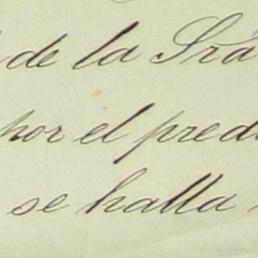 de la Sra
por el pred
se halla